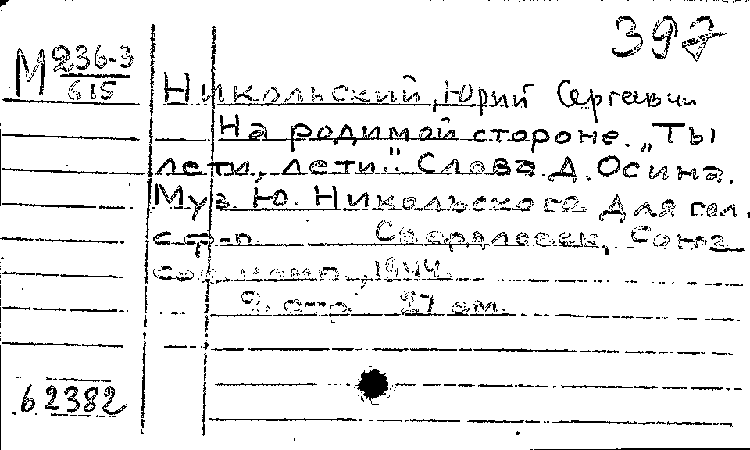 397
М 236-3
615
Никольский, Юрий Сергеевич
На родимой стороне. „Ты
лети, лети." Слова Д. Осина.
Муз. Ю. Никольского Для гол.
с ф-п. Свердловск, Союз
сов. комп., 1944.
2 стр. 27 см.
62382